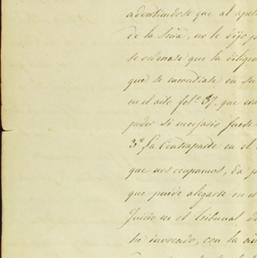 advirtiendose que al apel
de la Sria, no le dijo p
se ordenaba que la diligen
que se inmediate en su
en el auto fol.º 87, que esa
poder si necesario fuese
3º La Contraparte en el
que nos ocupamos, da p
que puede alegarse en e
Juicio en el Tribunal de
ha invocado, con la